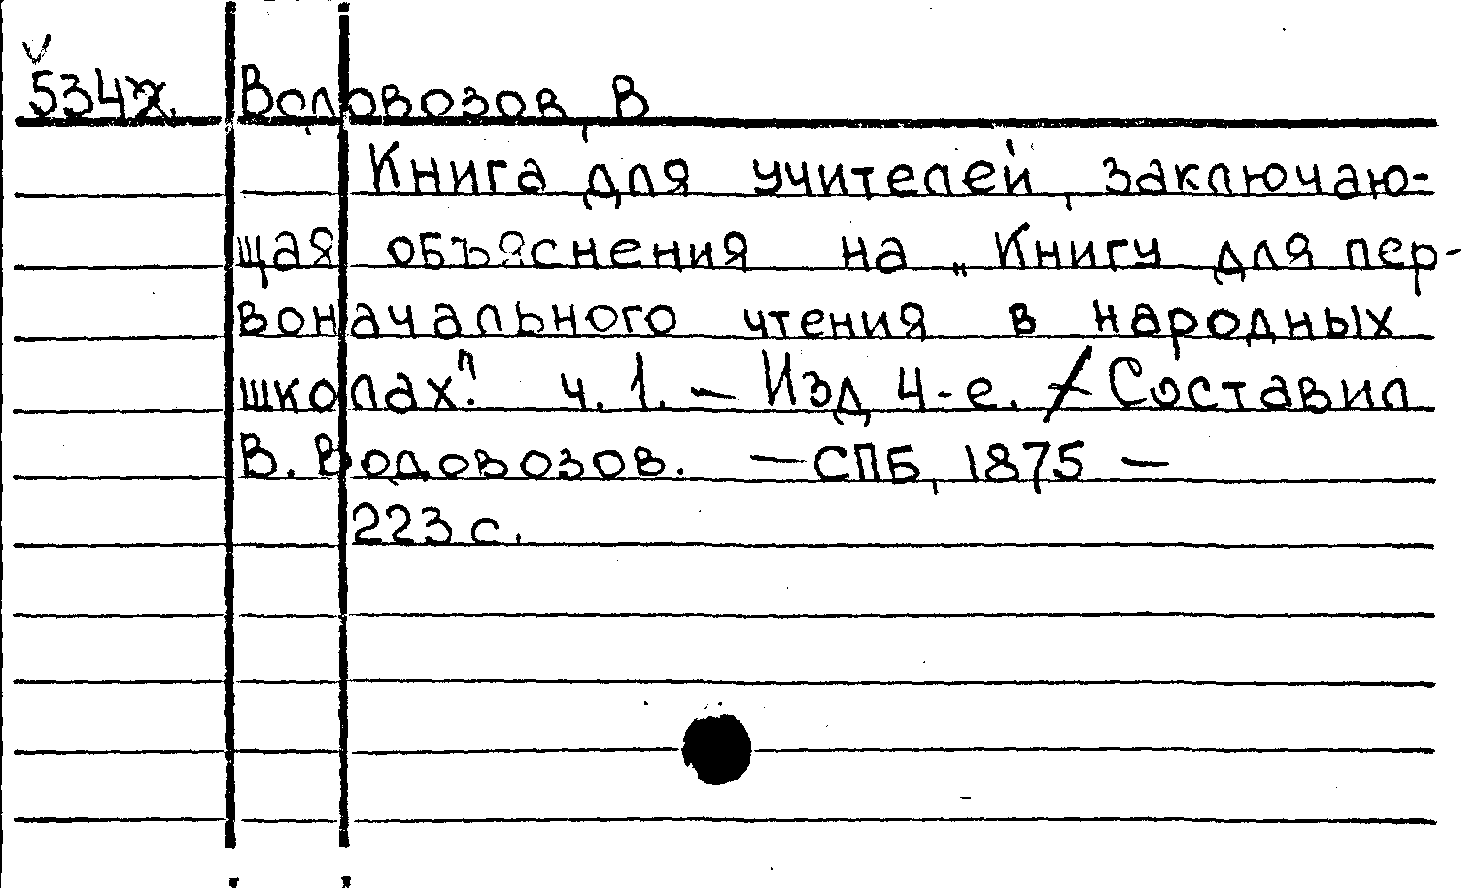 534х. Водовозов, В
Книга для учителей, заключаю-
щая объяснения на „Книгу для пер-
воначального чтения в народных
школах". ч. 1. — Изд 4-е. / Составил
В. Водовозов. — СПБ, 1875 —
223 с.